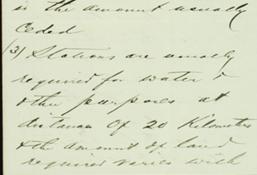 is the amount usually
Ceded
(3) Stations are usually
required for water &
other purposes at
distances Of 20 Kilometres
& the amount of land
required varies with